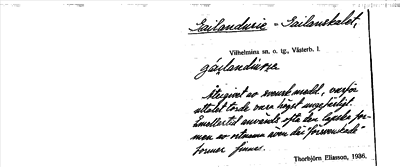 Gailandurie = Gailanskalet,
Vilhelmina sn. o. tg., Västerb. l.
gáilandiurie
Återgivet av svensk medd., varför
uttalet torde vara högst ungefärligt.
Emellertid används ofta den lapska for-
men av ortnamn även där försvenskade
former finnes.
Thorbjörn Eliasson, 1936.